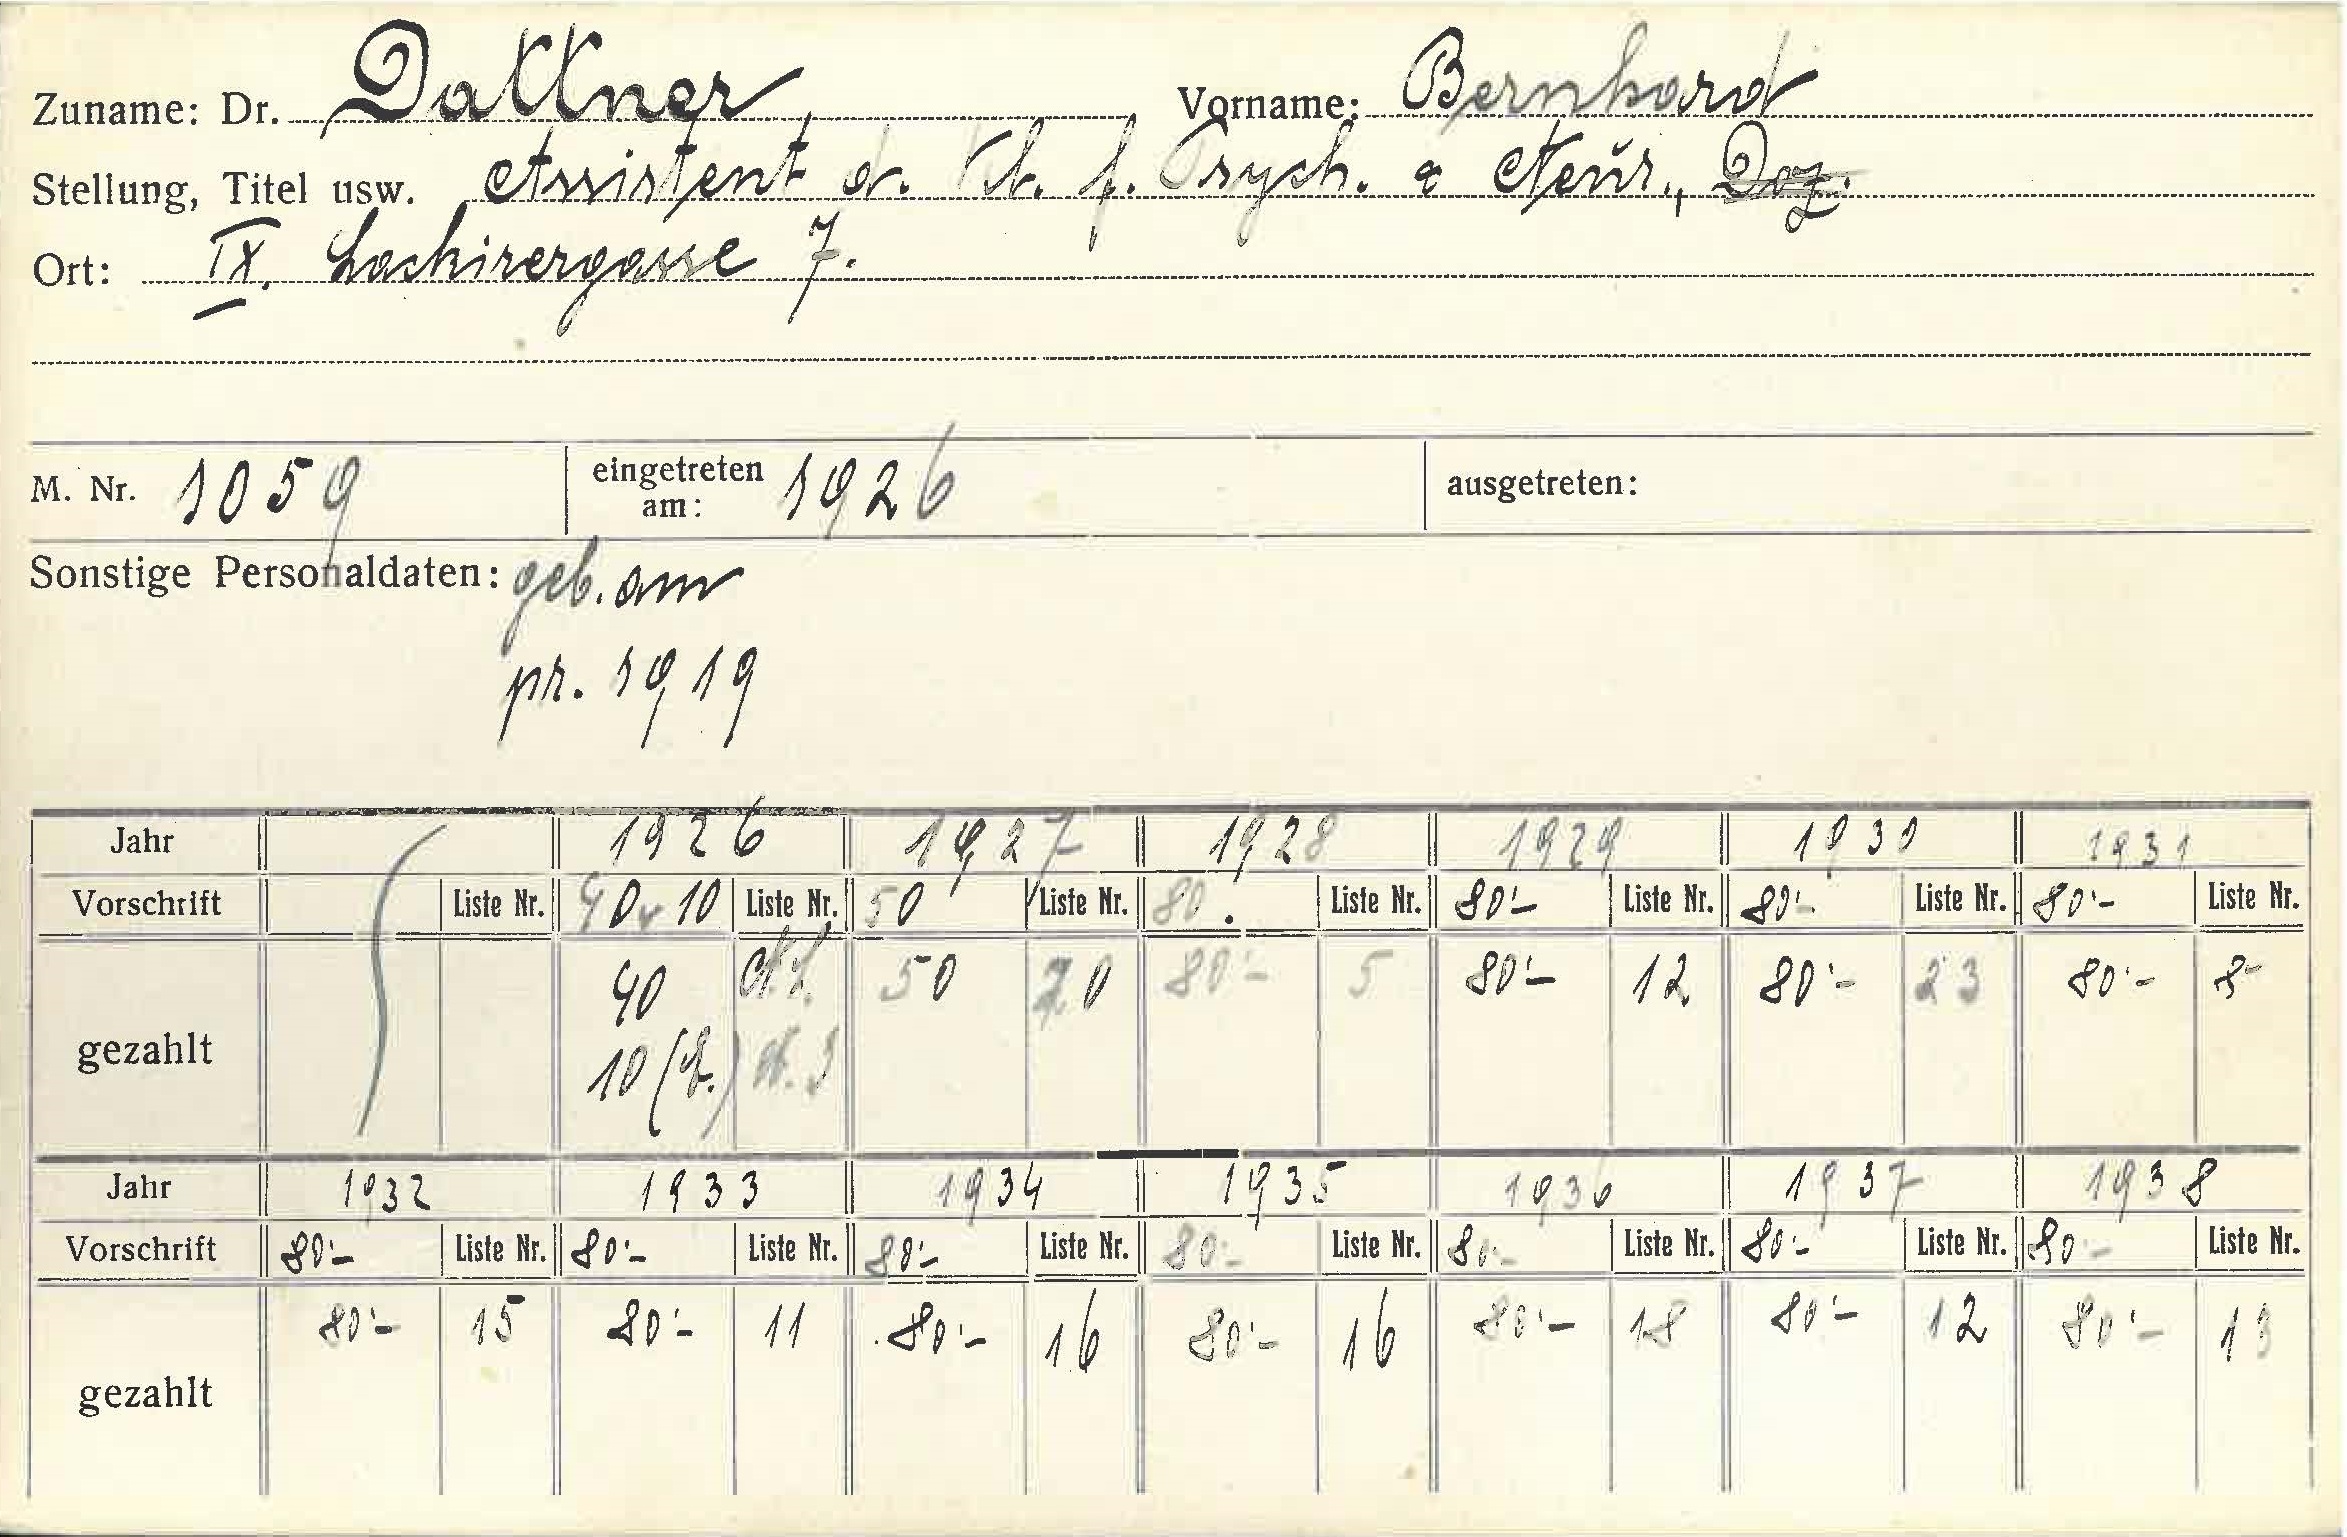 Zuname: Dr. Dattner Vorname: Bernhard
Stellung, Titel usw. Assistent d. Kl. f. Psych. & Neur., Doz.
Ort: IX. Lackirergasse 7.
M. Nr. 1059 eingetreten am: 1926 ausgetreten:
Sonstige Personaldaten: geb. am
pr. 1919
Jahr 1926 1927 1928 1929 1930 1931
Vorschrift Liste Nr. 40 10 Liste Nr. 50 Liste Nr. 80. Liste Nr. 80'- Liste Nr. 80'- Liste Nr. 80'- Liste Nr.
gezahlt 40 50 20 80'- 5 80'- 12 80'- 23 80'- 8
10
Jahr 1932 1933 1934 1935 1936 1937 1938
Vorschrift 80'- Liste Nr. 80'- Liste Nr. 80'- Liste Nr. 80'- Liste Nr. 80'- Liste Nr. 80'- Liste Nr. 80'- Liste Nr.
gezahlt 80'- 15 80'- 11 80'- 16 80'- 16 80'- 18 80'- 12 80'- 13